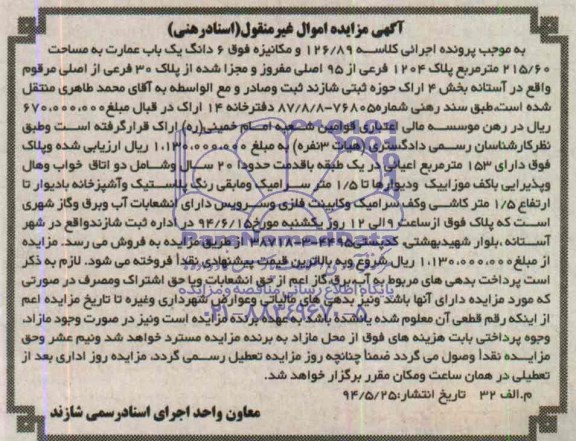 آگهی مزایده اموال غیرمنقول(اسنادرهنی)
به موجب پرونده اجرائی کلاسه ۱۲۶/۸۹ و مکانیزه فوق ۶ دانگ یک باب عمارت به مساحت
۲۱۵/۶۰ مترمربع پلاک ۱۲۰۴ فرعی از ۹۵ اصلی مفروز و مجزا شده از پلاک ۳۰ فرعی از اصلی مرقوم
واقع در آستانه بخش ۴ اراک حوزه ثبتی شازند ثبت وصادر و مع الواسطه به آقای محمد طاهری منتقل
شده است،طبق سند رهنی شماره۷۶۸۰۵-۸۷/۸/۸ دفترخانه ۱۴ اراک در قبال مبلغ۶۷۰,۰۰۰,۰۰۰
ریال در رهن موسسه مالی اعتباری قوامین شعبه امام خمینی(ره) اراک قرارگرفته است وطبق
نظرکارشناسان رسمی دادگستری (هیات ۳نفره) به مبلغ ۱,۱۳۰,۰۰۰,۰۰۰ ریال ارزیابی شده وپلاک
فوق دارای ۱۵۳ مترمربع اعیانی در یک طبقه باقدمت حدودا ۲۰ سال وشامل دو اتاق خواب وهال
وپذیرایی باکف موزاییک ودیوارها تا ۱/۵ متر سرامیک ومابقی رنگ پلاستیک وآشپزخانه بادیوار تا
ارتفاع ۱/۵ متر کاشی وکف سرامیک وکابینت فلزی وسرویس دارای انشعابات آب وبرق وگاز شهری
است که پلاک فوق ازساعت ۹الی ۱۲ روز یکشنبه مورخ۹۴/۶/۱۵ در اداره ثبت شازندواقع در شهر
آستانه،بلوار شهیدبهشتی، کدپستی۴۴۹۵-۳-۳۸۷۱۸ از طریق مزایده به فروش می رسد. مزایده
از مبلغ۱,۱۳۰,۰۰۰,۰۰۰ ریال شروع وبه بالاترین قیمت پیشنهادی نقداً فروخته می شود. لازم به ذکر
است پرداخت بدهی های مربوط به آب،برق،گاز اعم از حق انشعاب ویا حق اشتراک ومصرف در صورتی
که مورد مزایده دارای آنها باشد ونیز بدهی های مالیاتی وعوارض شهرداری وغیره تا تاریخ مزایده اعم
از اینکه رقم قطعی آن معلوم شده یانشده باشد به عهده برنده مزایده است ونیز در صورت وجود مازاد،
وجوه پرداختی بابت هزینه های فوق از محل مازاد به برنده مزایده مسترد خواهد شد ونیم عشر وحق
مزایده نقداً وصول می گردد ضمناً چنانچه روز مزایده تعطیل رسمی گردد، مزایده روز اداری بعد از
تعطیلی در همان ساعت ومکان مقرر برگزار خواهد شد.
م.الف ۳۲ تاریخ انتشار:۹۴/۵/۲۵
معاون واحد اجرای اسنادرسمی شازند
پایگاه اطلاع رسانی مناقصه ومزایده
۰۲۱-۸۸۳۴۹۶۷۰-۵